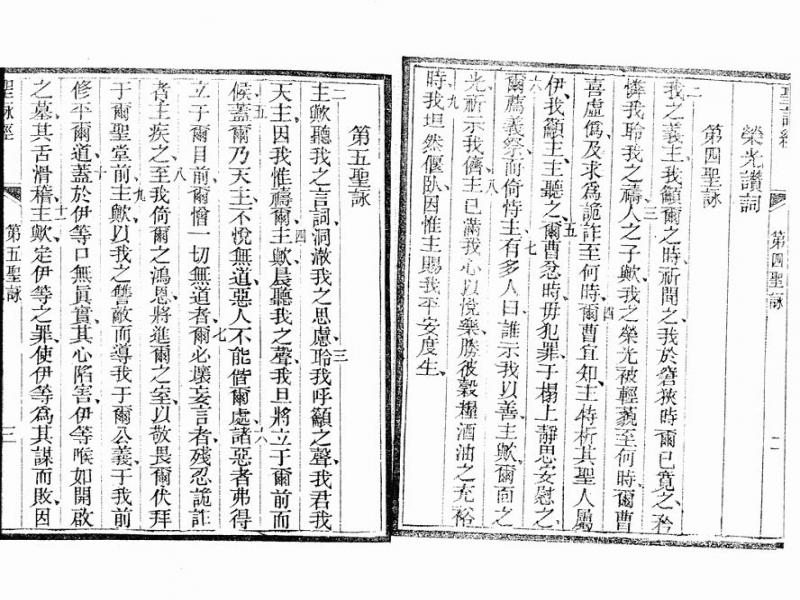 聖詠經 第四聖詠 二
榮光讚詞
第四聖詠
二我之義主、我籲爾之時、祈聞之、我於窘狹時、爾已寬之、矜
憐我、聆我之禱、三人之子歟、我之榮光被輕藐至何時、爾曹
喜虛僞、及求爲詭詐至何時、四爾曹宜知主特析其聖人屬
伊、我籲主、主聽之、五爾曹忿時毋犯罪、于榻上靜思安慰之、
六爾薦義祭而倚恃主、七有多人曰、誰示我以善、主歟、爾面之
光、祈示我儕、八主已滿我心以悅樂、勝彼穀糧酒油之充裕
時、九我坦然偃臥、因惟主賜我平安度生、
第五聖詠
二主歟、聽我之言詞、洞澈我之思慮、三聆我呼籲之聲、我君我
天主、因我惟禱爾、四主歟、晨聽我之聲、我旦將立于爾前而
候、五蓋爾乃天主、不悅無道、惡人不能偕爾處、六諸惡者弗得
立于爾目前、爾憎一切無道者、七爾必壞妄言者、殘忍詭詐
者、主疾之、八至我倚爾之鴻恩、將進爾之室、以敬畏爾、伏拜
于爾聖堂前、九主歟、以我之讐敵、而導我于爾公義、于我前
修平爾道、十蓋於伊等口無眞實、其心陷害、伊等喉如開啟
之墓、其舌滑稽、十一主歟、定伊等之罪、使伊等爲其謀而敗、因
聖詠經 第五聖詠 三